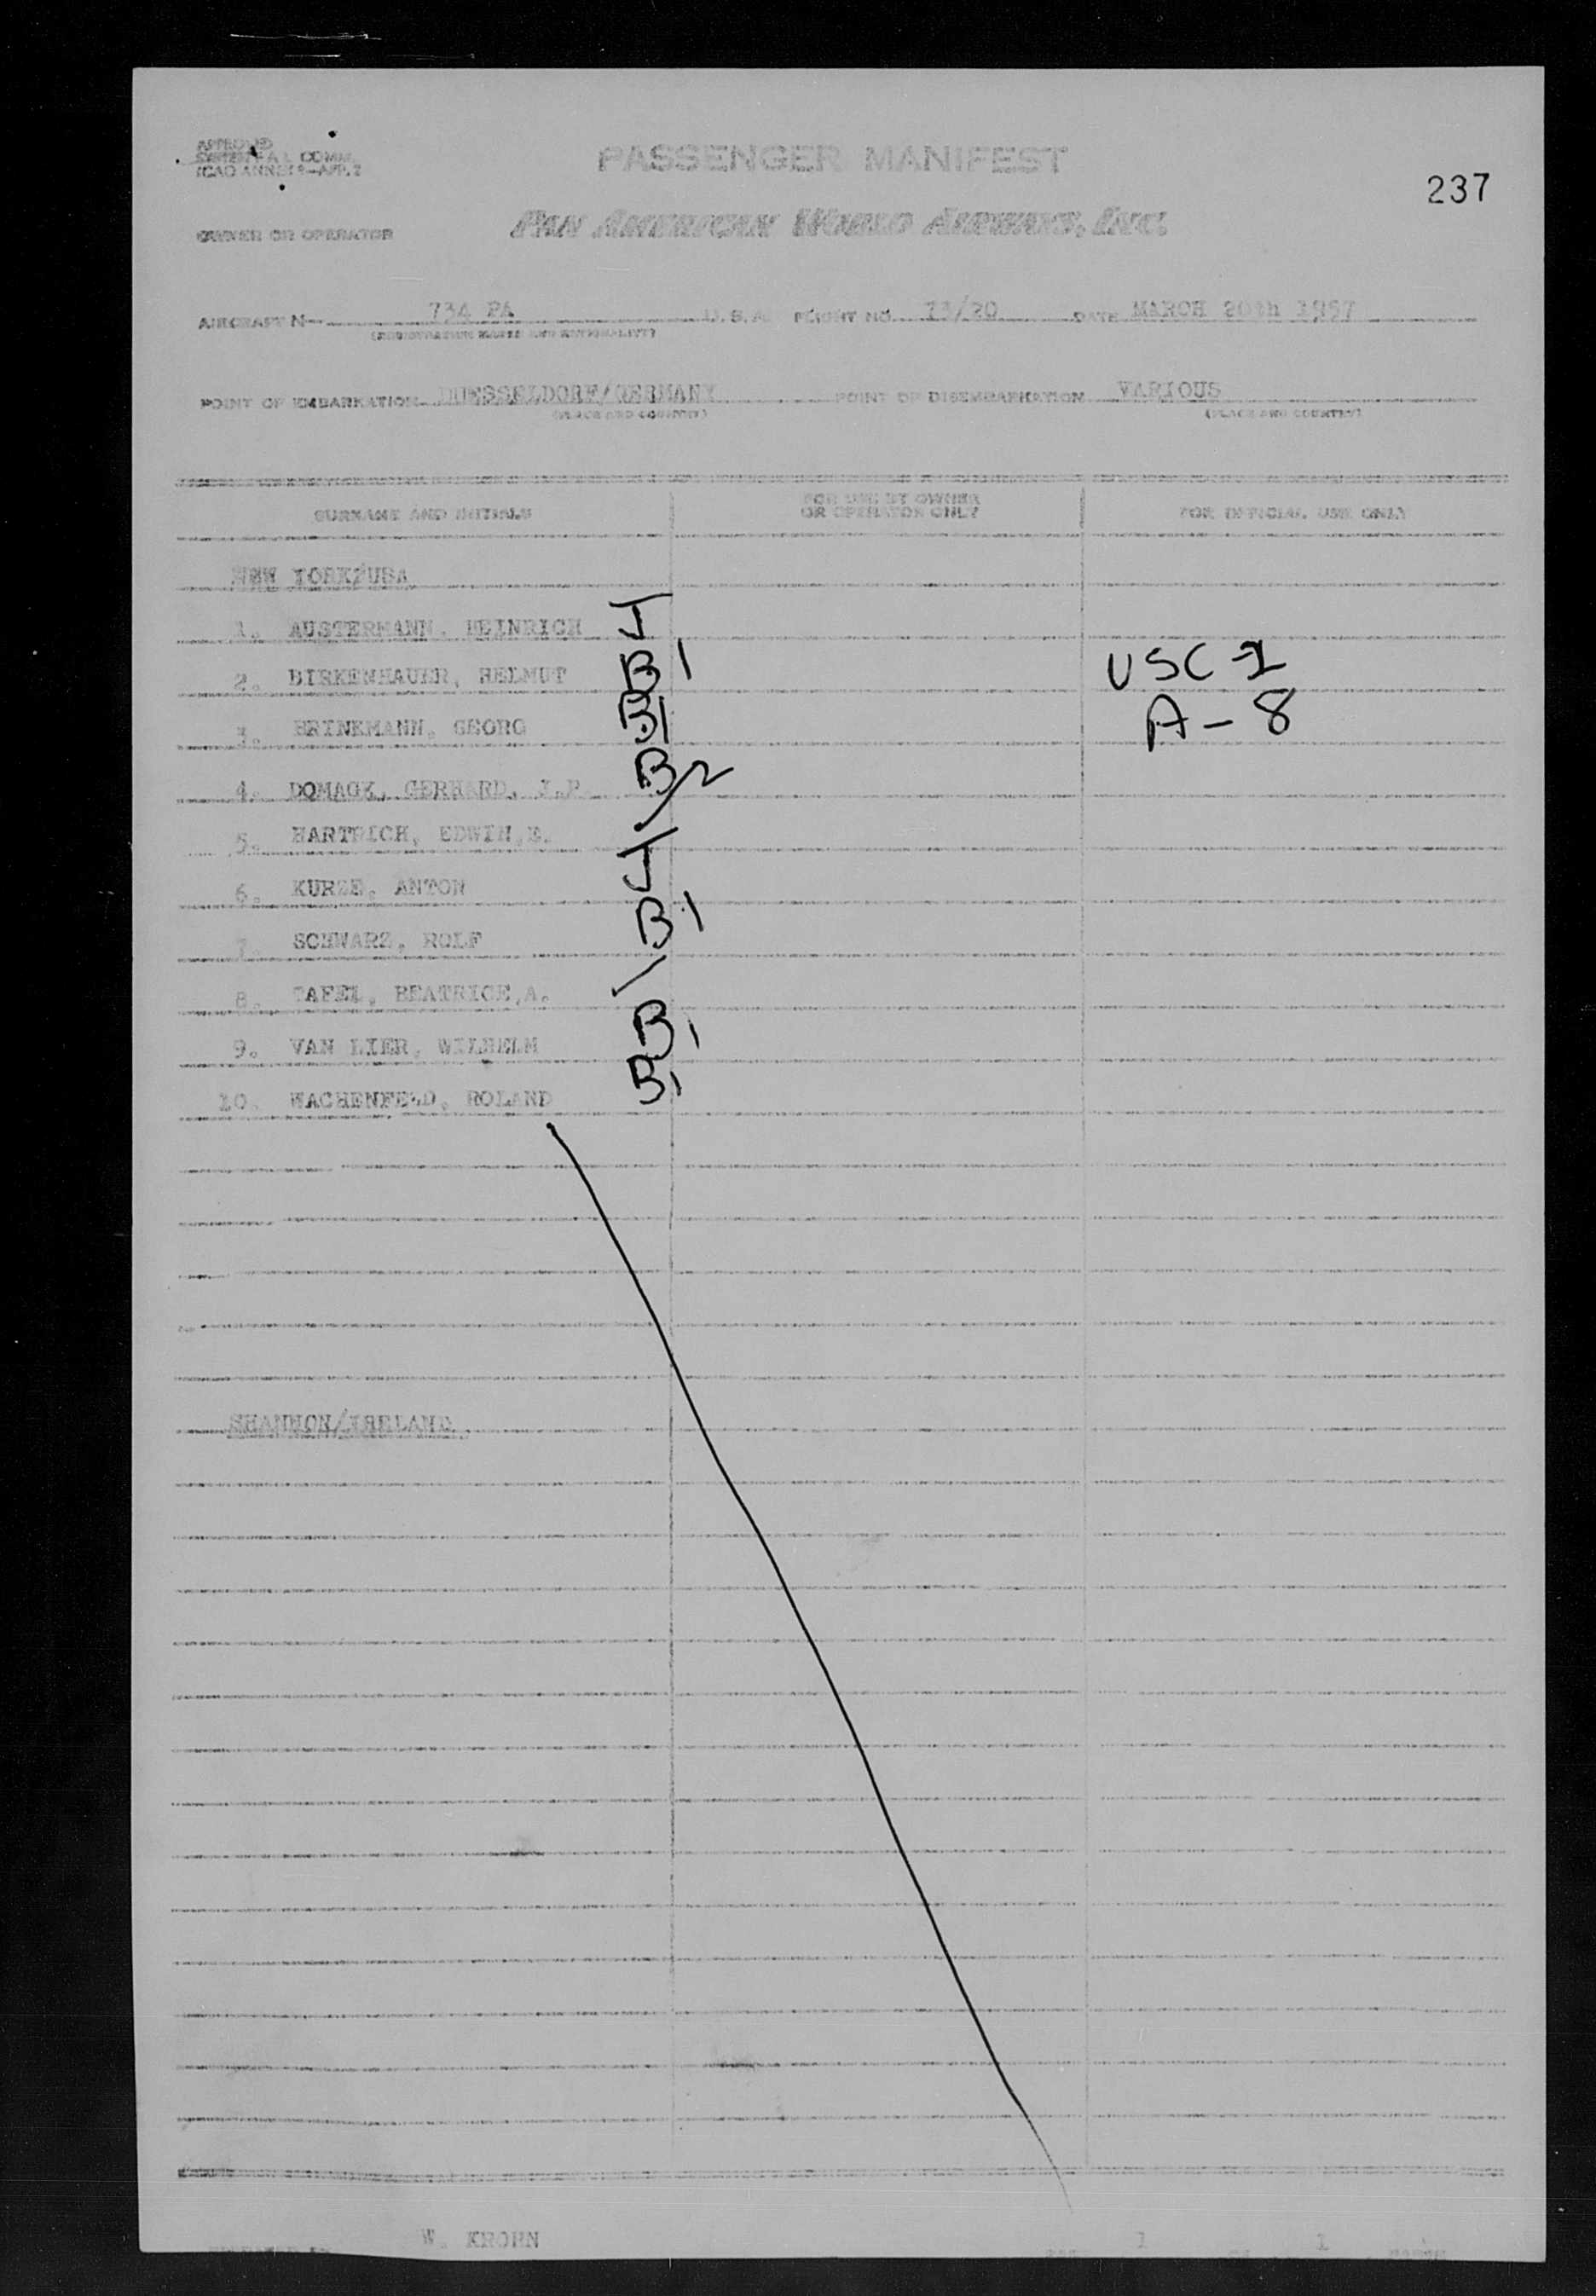 APPROVED
COMM.
ICAO ANNEX 9-APP. 2
PASSENGER MANIFEST
237
OWNER OR OPERATOR
PAN AMERICAN WORLD AIRWAYS, INC.
AIRCRAFT N— 734 PA U.S.A. FLIGHT NO. 73/20 DATE MARCH 20th 1957
(REGISTRATION MARKS AND NATIONALITY)
POINT OF EMBARKATION DUESSELDORF/GERMANY POINT OF DISEMBARKATION VARIOUS
(PLACE AND COUNTRY) (PLACE AND COUNTRY)
SURNAME AND INITIALS
FOR USE BY OWNER
OR OPERATOR ONLY
FOR OFFICIAL USE ONLY
NEW YORK/USA
1. AUSTERMANN, HEINRICH J
2. BIRKENHAUER, HELMUT B1 USC-1
3. BRINKMANN, GEORG B1 A-8
4. DOMAGK, GERHARD, J.P. B2
5. HARTRICH, EDWIN,E. /
6. KURZE, ANTON J
7. SCHWARZ, ROLF B1
8. TAFEL, BEATRICE,A. /
9. VAN LIER, WILHELM B1
10. WACHENFELD, ROLAND B1
SHANNON/IRELAND
PREPARED BY W. KROHN 1 1